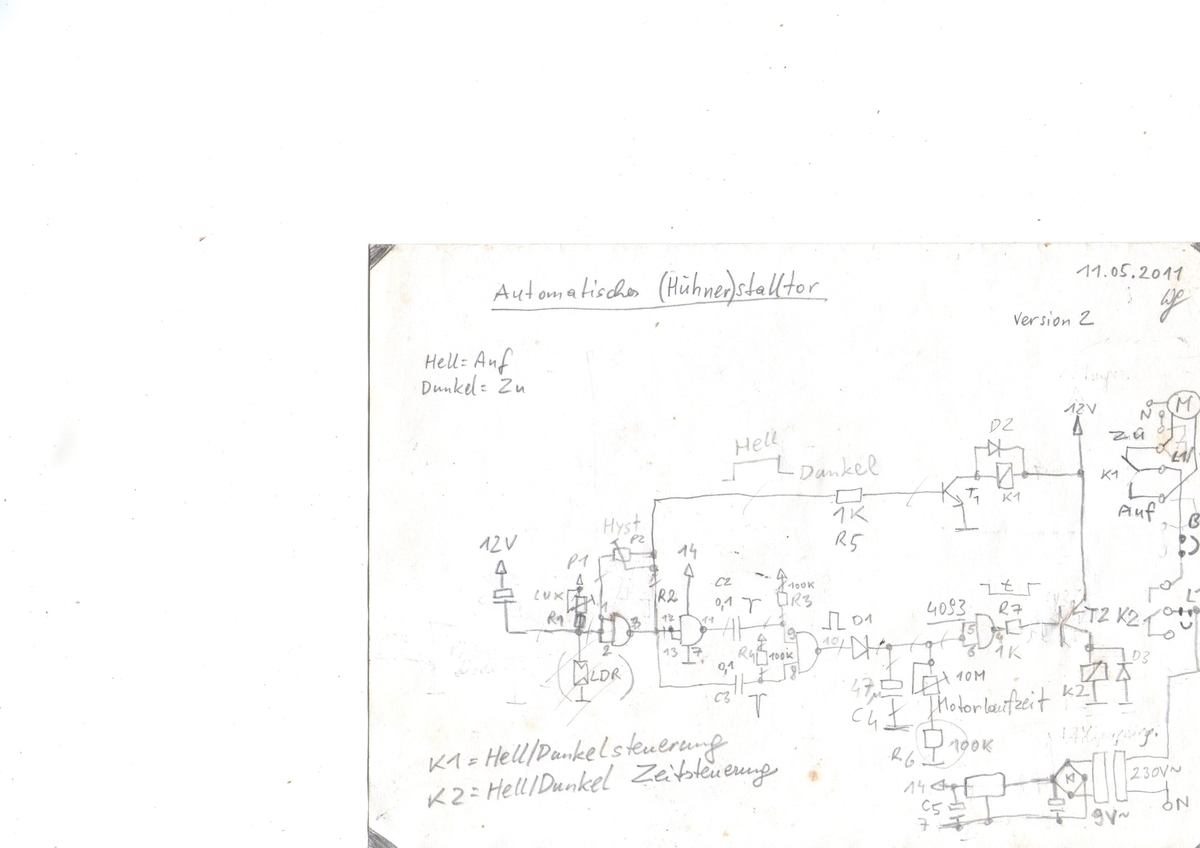 11.05.2011
Automatisches (Hühner)stalltor
Version 2
Hell= Auf
Dunkel= Zu
12V
M
N
Zu
D2
L1
Hell
Dunkel
K1
T1
K1
Auf
1K
R5
Hyst
P2
12V
P1
14
B
LUX
R1
1
2
3
R2
12
13
11
7
C2
0,1
100K
R3
R4
100K
0,1
C3
9
8
10
D1
4093
5
6
4
t
R7
1K
T2
K2
LDR
47µ
C4
10M
Motorlaufzeit
K2
D3
R6
100K
K1 = Hell/Dunkelsteuerung
K2 = Hell/Dunkel Zeitsteuerung
14
C5
7
9V~
230V~
N